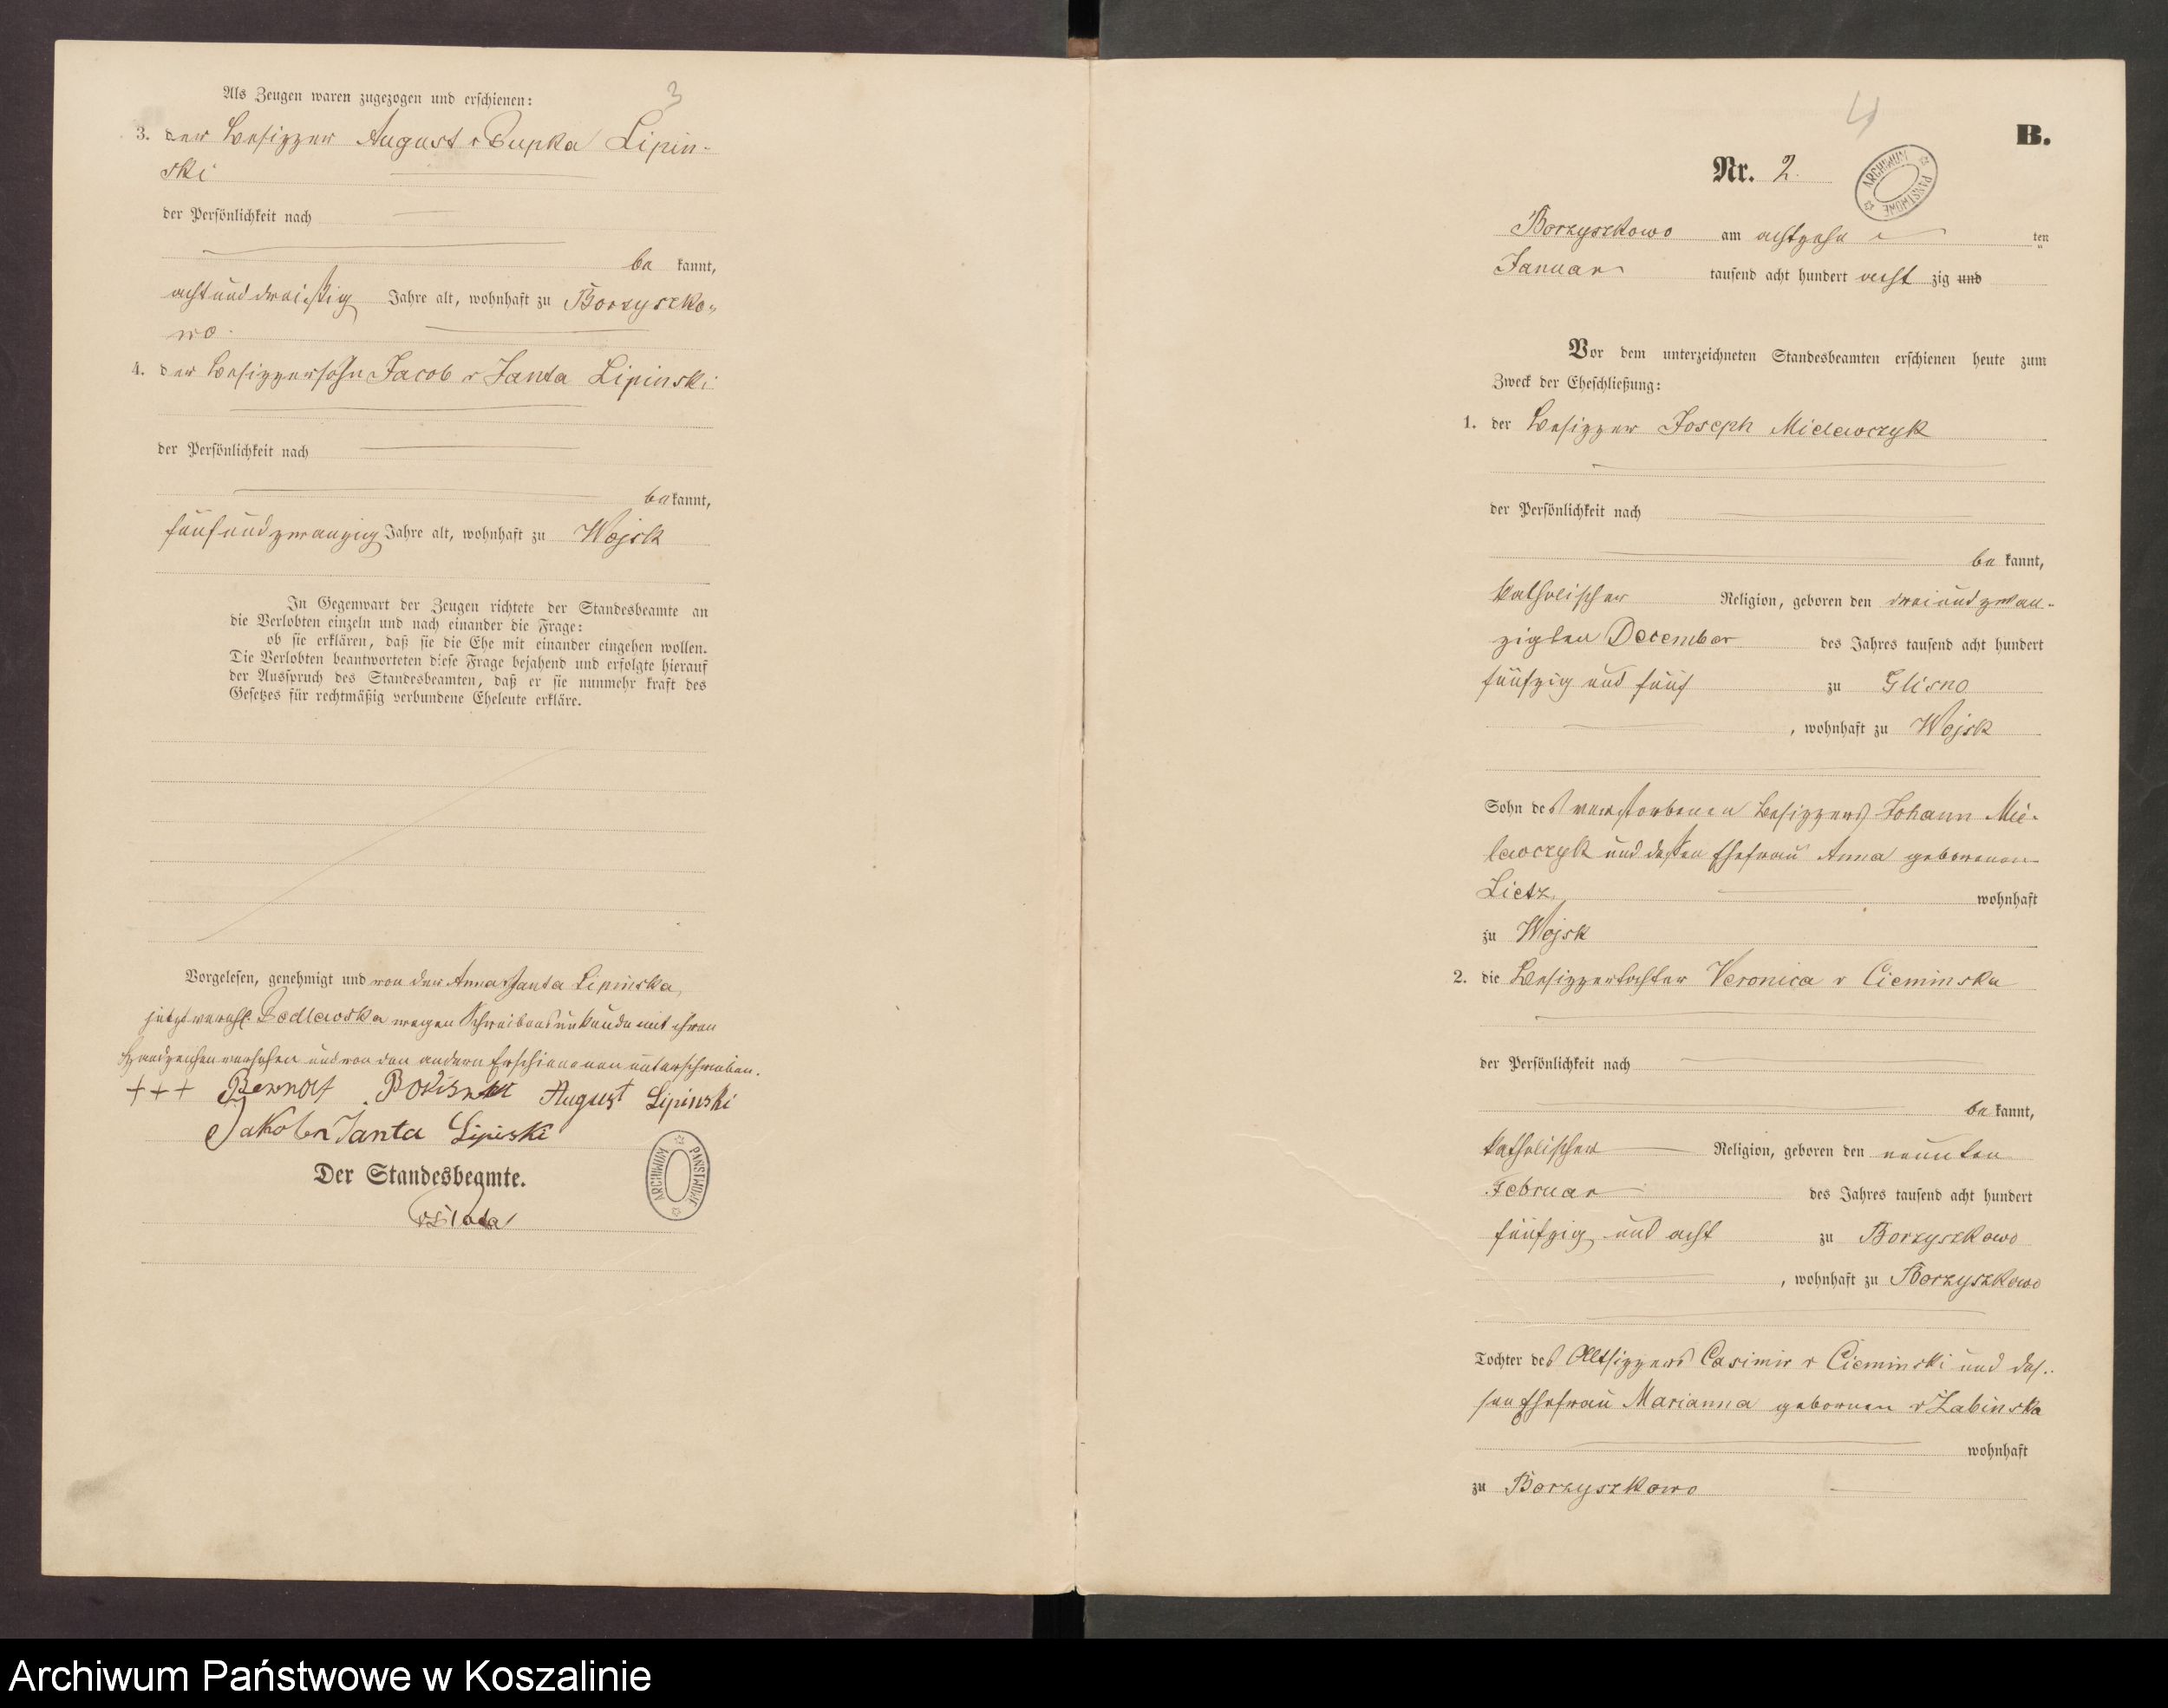 3
Als Zeugen waren zugezogen und erschienen:
3. der Besitzer August v Pupka Lipin-
ski
der Persönlichkeit nach
be kannt,
achtunddreißig Jahre alt, wohnhaft zu Borzyszko-
wo.
4. der Besitzersohn Jacob v Janta Lipinski
der Persönlichkeit nach
be kannt,
fünfundzwanzig Jahre alt, wohnhaft zu Wojsk
In Gegenwart der Zeugen richtete der Standesbeamte an
die Verlobten einzeln und nach einander die Frage:
ob sie erklären, daß sie die Ehe mit einander eingehen wollen.
Die Verlobten beantworteten diese Frage bejahend und erfolgte hierauf
der Ausspruch des Standesbeamten, daß er sie nunmehr kraft des
Gesetzes für rechtmäßig verbundene Eheleute erkläre.
Vorgelesen, genehmigt und von der Anna v Janta Lipinska,
jetzt verehl. wegen Schreibensunkunde mit ihren
Handzeichen versehen und von den andern Erschienenen unterschrieben.
+++ August Lipinski
Jakob v Janta Lipiski
Der Standesbeamte.
ARCHIWUM PAŃSTWOWE
4
B.
Nr. 2.
ARCHIWUM PAŃSTWOWE
Borzyszkowo am achtzehn ten
Januar tausend acht hundert acht zig und
Vor dem unterzeichneten Standesbeamten erschienen heute zum
Zweck der Eheschließung:
1. der Besitzer Joseph Mielawczyk
der Persönlichkeit nach
be kannt,
katholischer Religion, geboren den dreiundzwan-
zigten December des Jahres tausend acht hundert
fünfzig und fünf zu Glisno
, wohnhaft zu Wojsk
Sohn des verstorbenen Besitzers Johann Mie-
lawczyk und dessen Ehefrau Anna geborenen
Lietz, wohnhaft
zu Wojsk
2. die Besitzertochter Veronica v Cieminska
der Persönlichkeit nach
be kannt,
katholischer Religion, geboren den neunten
Februar des Jahres tausend acht hundert
fünfzig und acht zu Borzyszkowo
, wohnhaft zu Borzyszkowo
Tochter des Altsitzers Casimir v Cieminski und des-
sen Ehefrau Marianna gebornen v Zabinska
wohnhaft
zu Borzyszkowo
Archiwum Państwowe w Koszalinie